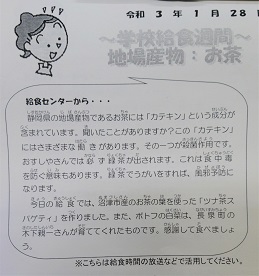 令和 3年 1月 28
～学校給食週間～
地場産物：お茶
給食センターから・・・
静岡県の地場産物であるお茶には「カテキン」という成分が
含まれています。聞いたことがありますか？この「カテキン」
にはさまざまな働きがあります。その一つが殺菌作用です。
おすしやさんでは必ず緑茶が出されます。これは食中毒
を防ぐ意味もあります。緑茶でうがいをすれば、風邪予防に
なります。
今日の給食では、沼津市産のお茶の葉を使った「ツナ茶ス
パゲティ」を作りました。また、ポトフの白菜は、長泉町の
木下親一さんが育ててくれたものです。感謝して食べましょ
う。
※こちらは給食時間の放送などで活用してください。